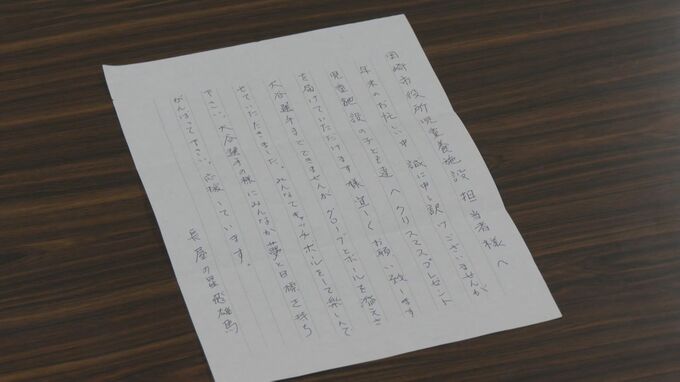 岡崎市役所児童養護施設 担当者様へ
年末のお忙しい中 誠に申し訳けございませんが
児童施設の子ども達へクリスマスプレゼント
を届けていただけます様宜しくお願い致します
大谷選手までできませんがグローブとボールを備えさ
せていただきました。みんなでキャッチボールをして楽しんで
下さい。大谷選手の様にみんなが夢と目標を持ち
がんばって下さい。応援しています。
長屋の星飛雄馬